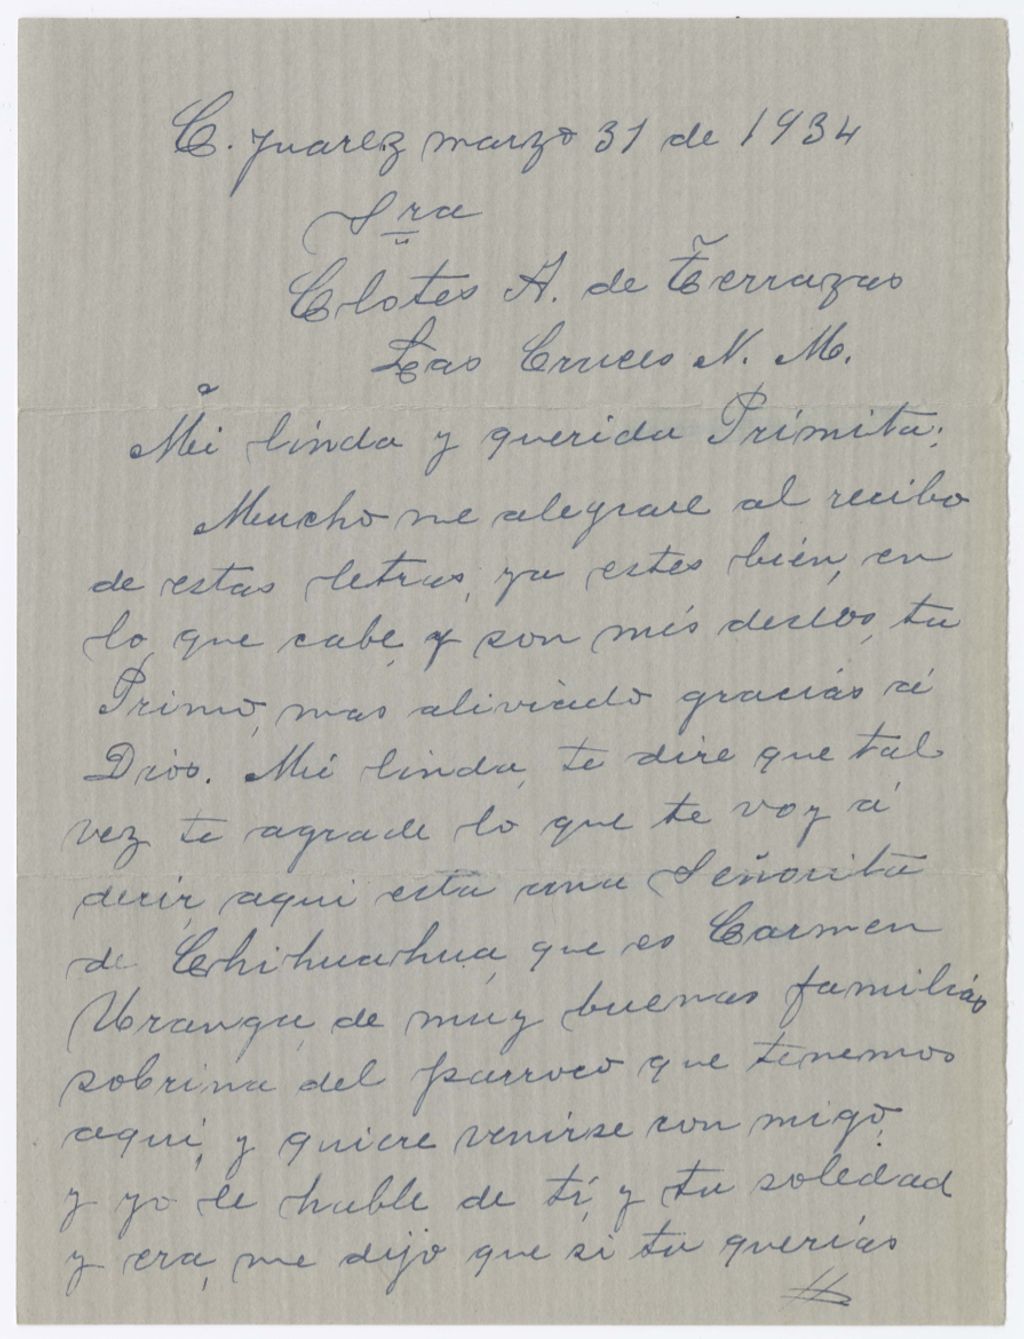 C. Juarez marzo 31 de 1934
Sra
Clotes A. de Terrazas
Las Cruces N. M.
Mi linda y querida Primita;
Mucho me alegrare al recibo
de estas letras, ya estes bién, en
lo que cabe, y son mis deseos, tu
Primo, mas aliviado graciás á
Dios. Mi linda, te dire que tal
vez te agrade lo que te voy á
decir, aqui esta una Señorita
de Chihuahua, que es Carmen
Uranga, de muy buenas familiás
sobrina del parroco que tenemos
aqui, y quiere venirse con migo,
y yo le hable de tí, y tu soledad
y era, me dijo que si tu querías